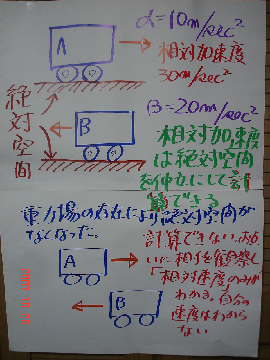 A
α=10m/sec²
相対加速度
30m/sec²
絶対空間
B
β=20m/sec²
相対加速度
は絶対空間
を仲立にして計
算できる
重力場の存在により絶対空間が
なくなった。
計算できない。お互
いに相手を観察し
「相対速度のみが
わかる。自分の
速度はわから
ない
A
B